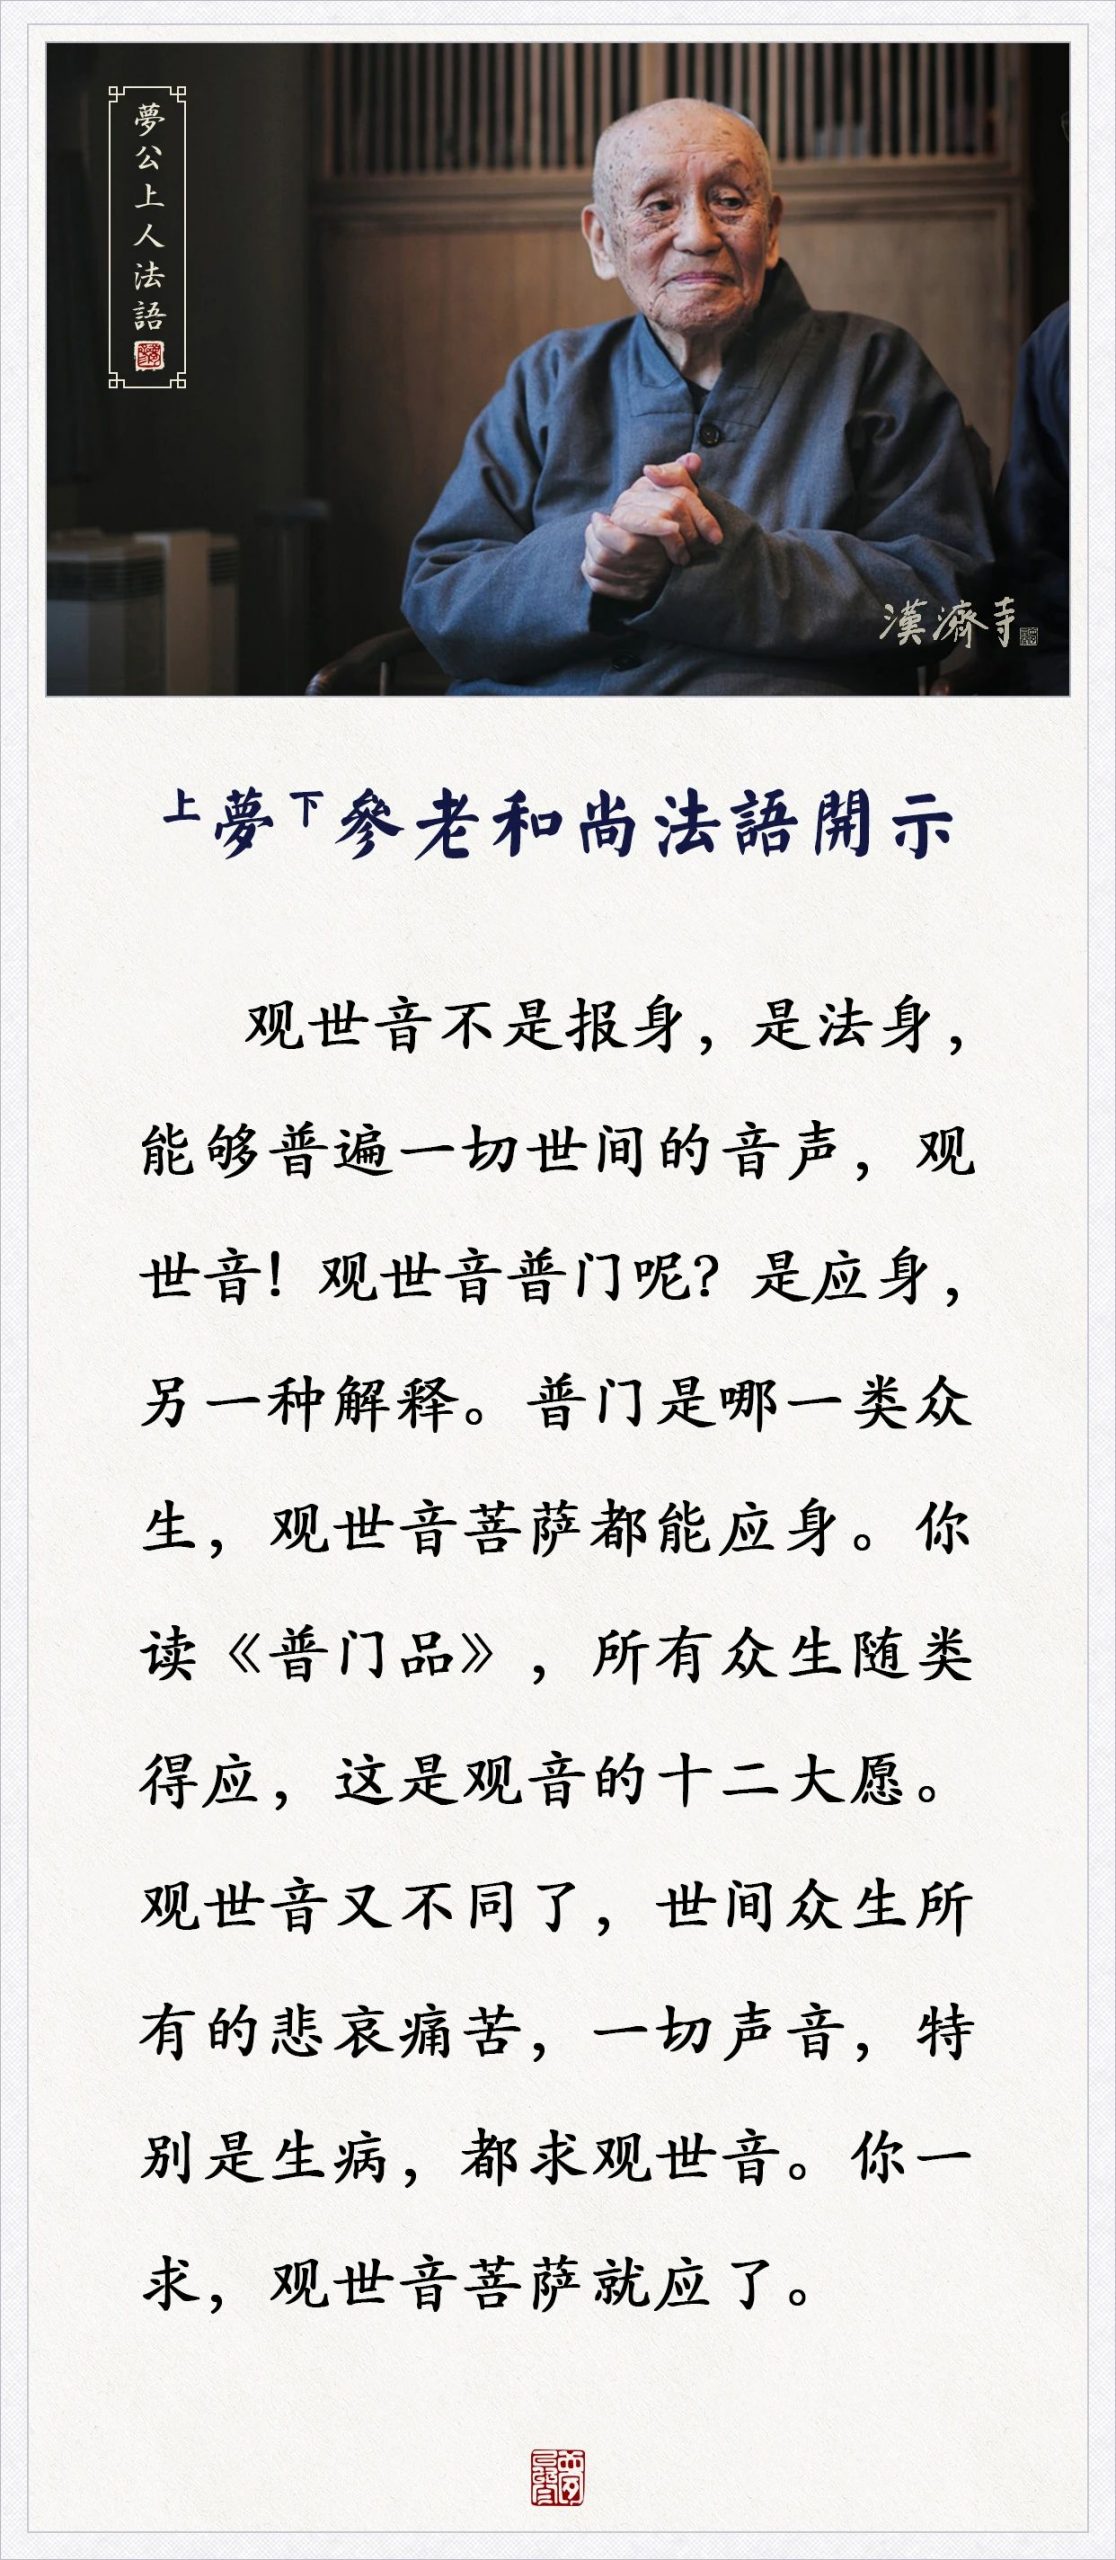 夢公上人法語
漢濟寺
上夢下參老和尚法語開示
观世音不是报身，是法身，
能够普遍一切世间的音声，观
世音！观世音普门呢？是应身，
另一种解释。普门是哪一类众
生，观世音菩萨都能应身。你
读《普门品》，所有众生随类
得应，这是观音的十二大愿。
观世音又不同了，世间众生所
有的悲哀痛苦，一切声音，特
别是生病，都求观世音。你一
求，观世音菩萨就应了。